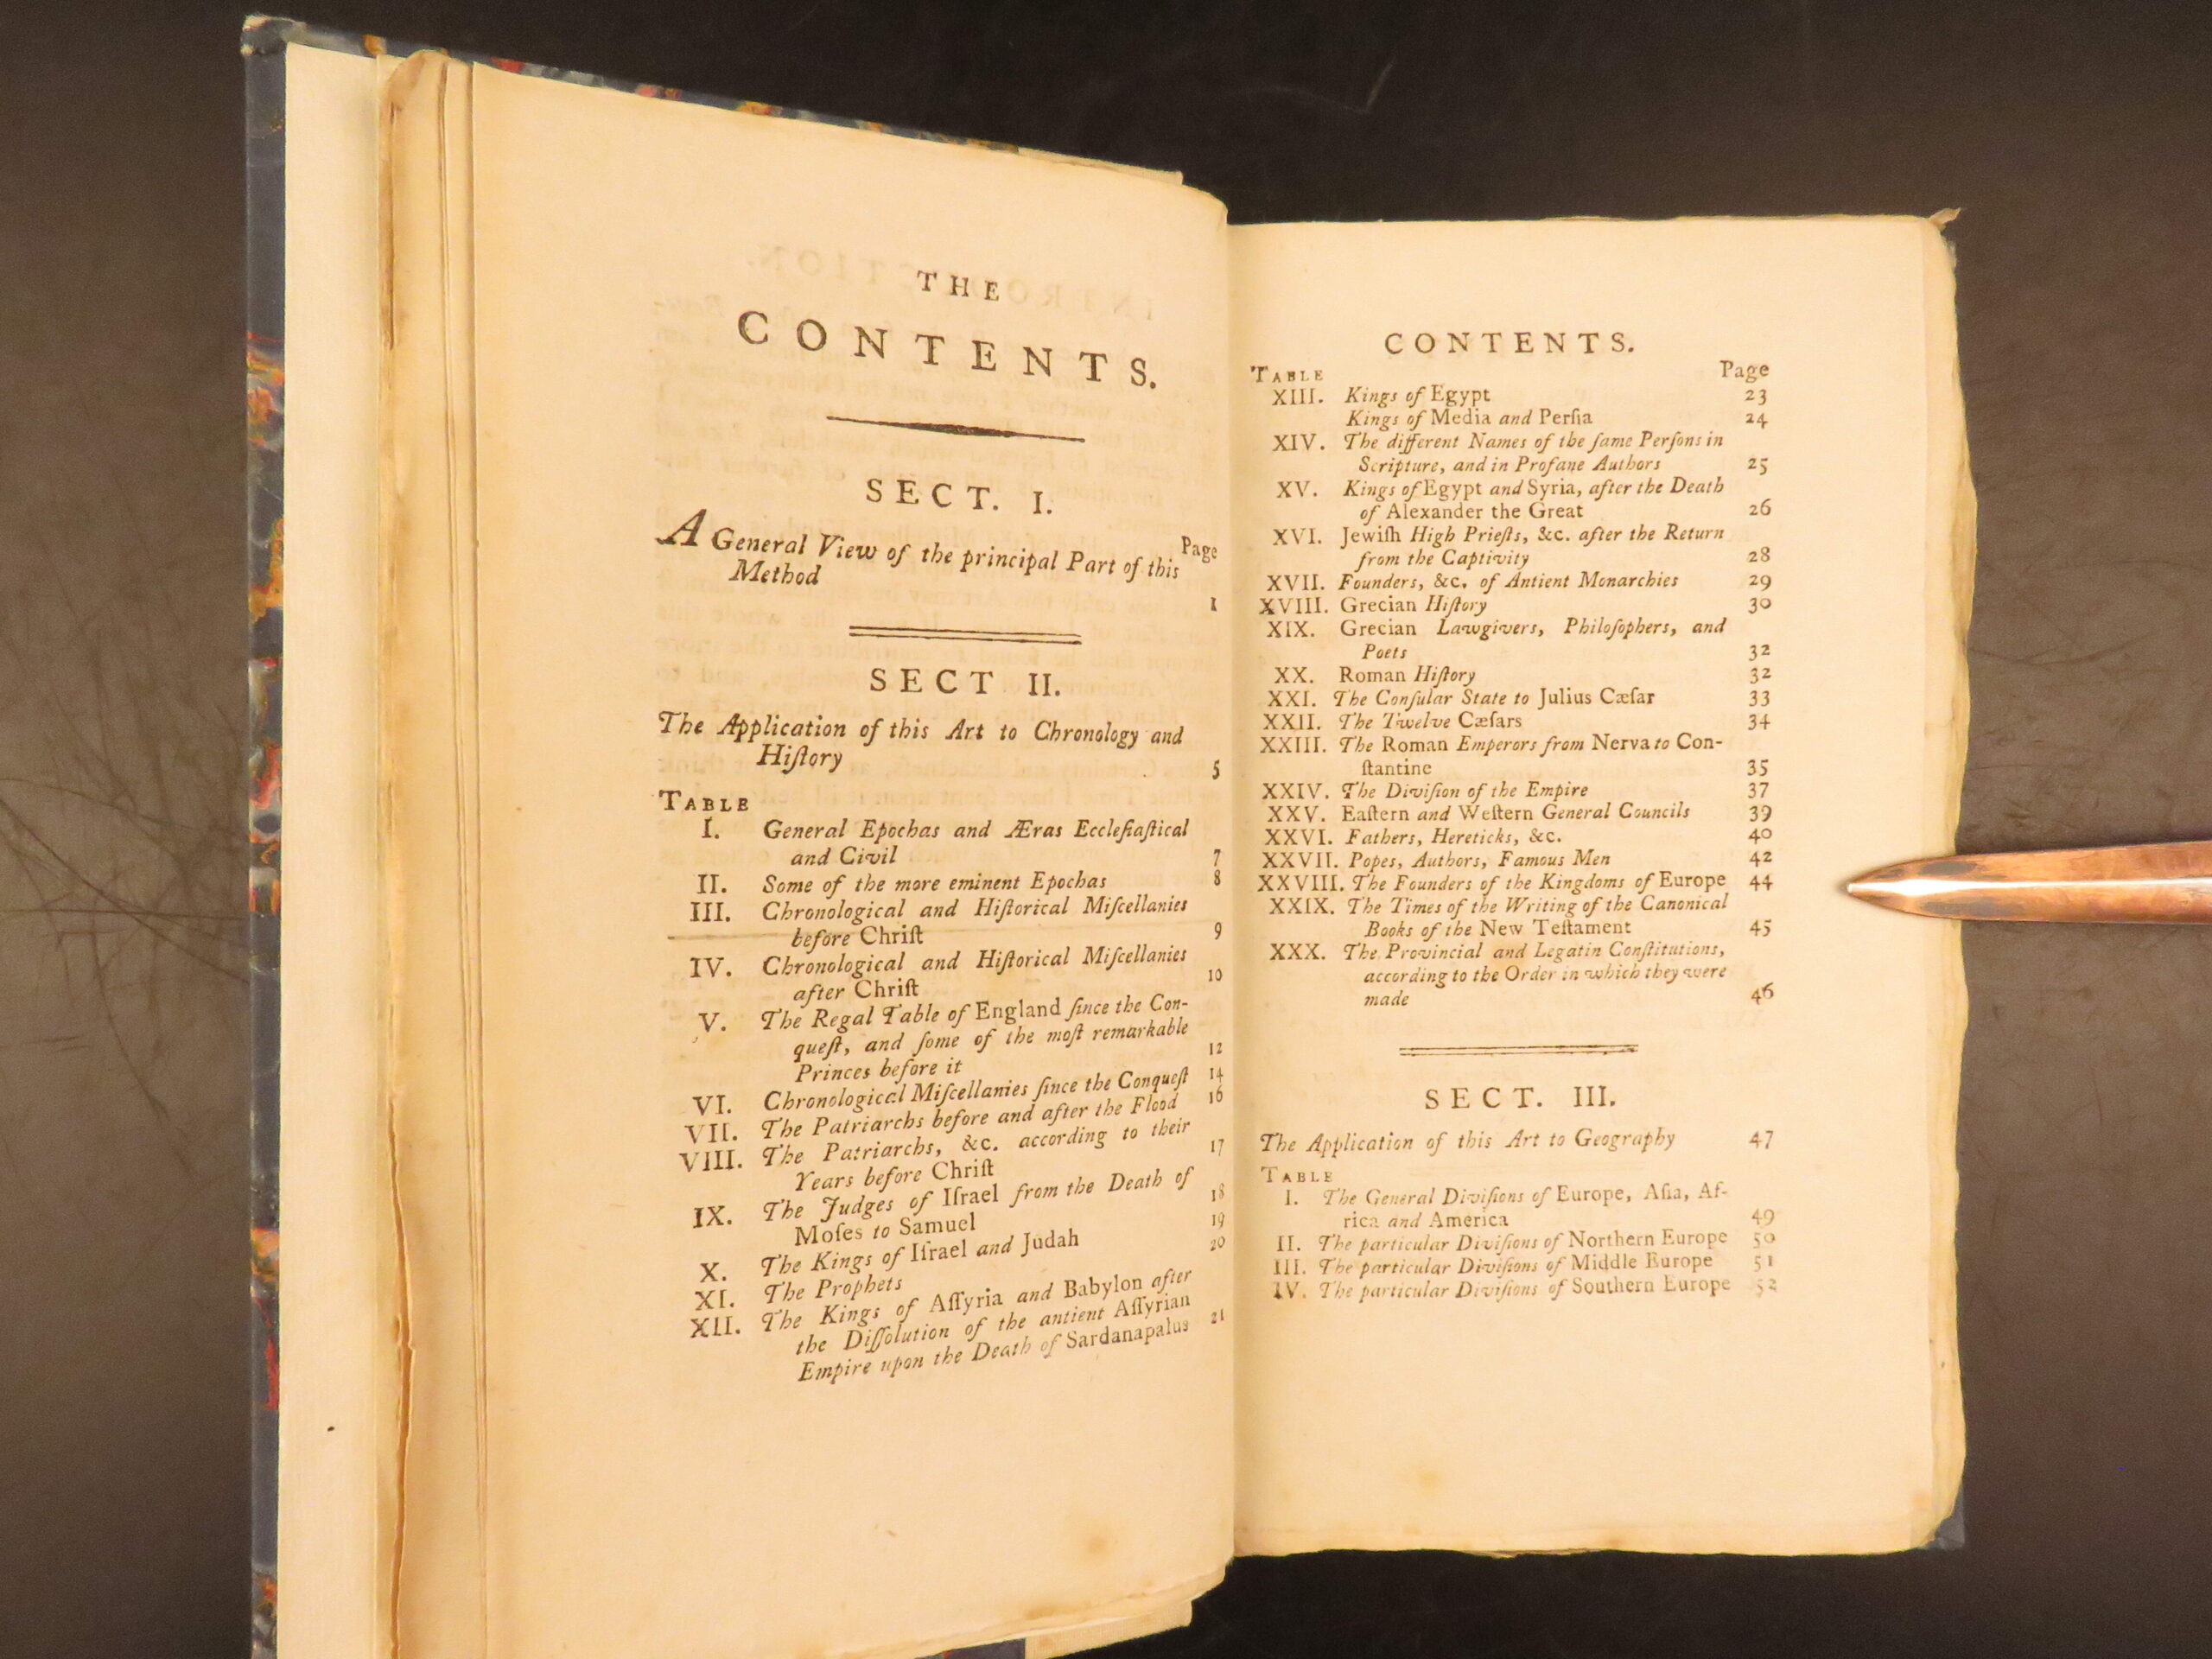 THE
CONTENTS.
SECT. I.
Page
A General View of the principal Part of this
Method 1
SECT II.
The Application of this Art to Chronology and
Hiſtory 5
TABLE
I. General Epochas and Æras Eccleſiaſtical
and Civil 7
II. Some of the more eminent Epochas 8
III. Chronological and Hiſtorical Miſcellanies
before Chriſt 9
IV. Chronological and Hiſtorical Miſcellanies
after Chriſt 10
V. The Regal Table of England ſince the Con-
queſt, and ſome of the moſt remarkable
Princes before it 12
VI. Chronological Miſcellanies ſince the Conqueſt 14
VII. The Patriarchs before and after the Flood 16
VIII. The Patriarchs, &c. according to their
Years before Chriſt 17
IX. The Judges of Iſrael from the Death of
Moſes to Samuel 18
X. The Kings of Iſrael and Judah 19
XI. The Prophets 20
XII. The Kings of Aſſyria and Babylon after
the Diſſolution of the antient Aſſyrian
Empire upon the Death of Sardanapalus 21
CONTENTS.
TABLE Page
XIII. Kings of Egypt 23
Kings of Media and Perſia 24
XIV. The different Names of the ſame Perſons in
Scripture, and in Profane Authors 25
XV. Kings of Egypt and Syria, after the Death
of Alexander the Great 26
XVI. Jewiſh High Prieſts, &c. after the Return
from the Captivity 28
XVII. Founders, &c. of Antient Monarchies 29
XVIII. Grecian Hiſtory 30
XIX. Grecian Lawgivers, Philoſophers, and
Poets 32
XX. Roman Hiſtory 32
XXI. The Conſular State to Julius Cæſar 33
XXII. The Twelve Cæſars 34
XXIII. The Roman Emperors from Nerva to Con-
ſtantine 35
XXIV. The Diviſion of the Empire 37
XXV. Eaſtern and Weſtern General Councils 39
XXVI. Fathers, Hereticks, &c. 40
XXVII. Popes, Authors, Famous Men 42
XXVIII. The Founders of the Kingdoms of Europe 44
XXIX. The Times of the Writing of the Canonical
Books of the New Teſtament 45
XXX. The Provincial and Legatin Conſtitutions,
according to the Order in which they were
made 46
SECT. III.
The Application of this Art to Geography 47
TABLE
I. The General Diviſions of Europe, Aſia, Af-
rica and America 49
II. The particular Diviſions of Northern Europe 50
III. The particular Diviſions of Middle Europe 51
IV. The particular Diviſions of Southern Europe 52